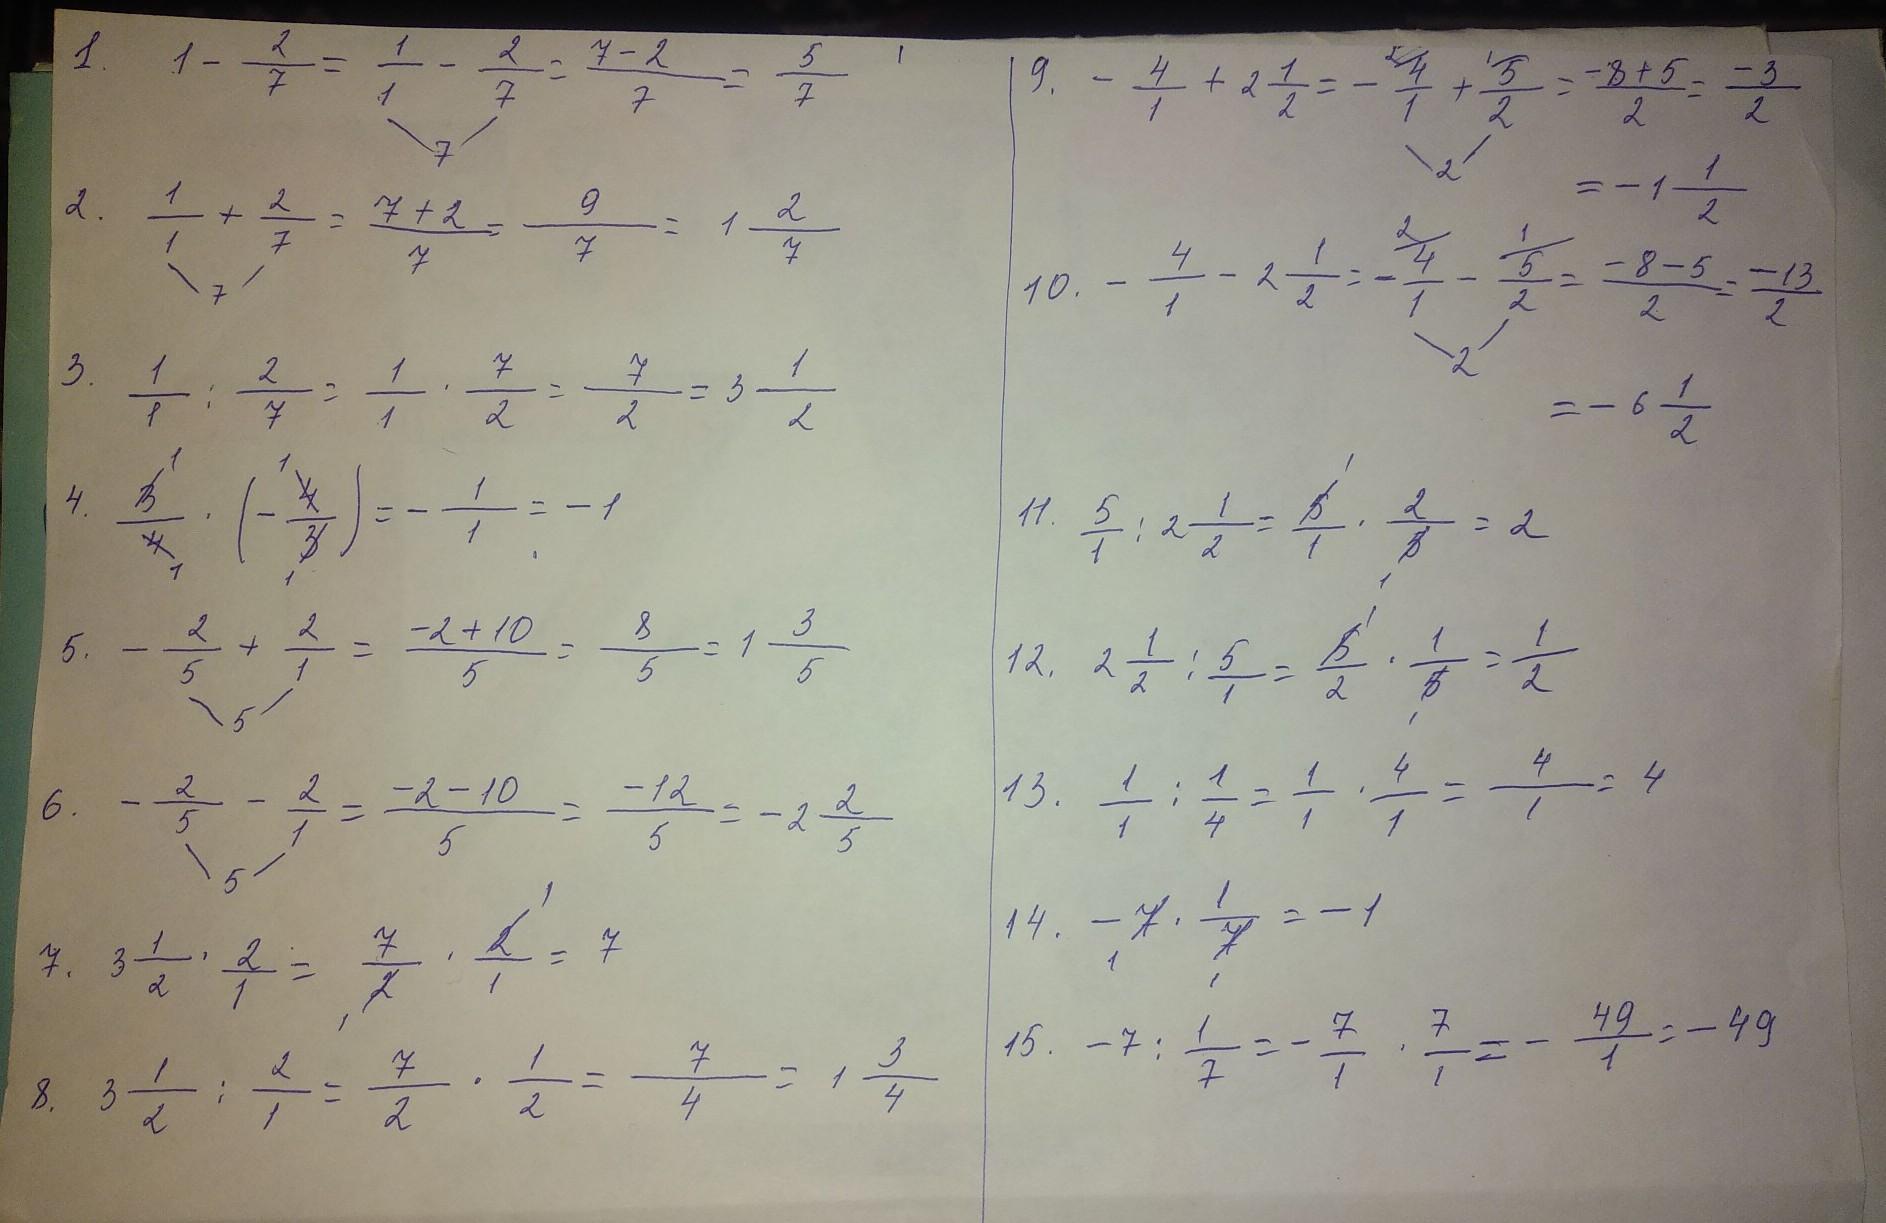 1. 1 - 2/7 = 1/1 - 2/7 = (7-2)/7 = 5/7
7
2. 1/1 + 2/7 = (7+2)/7 = 9/7 = 1 2/7
7
3. 1/1 : 2/7 = 1/1 · 7/2 = 7/2 = 3 1/2
4. 3/4 · (-4/3) = -1/1 = -1
5. -2/5 + 2/1 = (-2+10)/5 = 8/5 = 1 3/5
5
6. -2/5 - 2/1 = (-2-10)/5 = -12/5 = -2 2/5
5
7. 3 1/2 · 2/1 = 7/2 · 2/1 = 7
8. 3 1/2 : 2/1 = 7/2 · 1/2 = 7/4 = 1 3/4
9. -4/1 + 2 1/2 = -4/1 + 5/2 = (-8+5)/2 = -3/2
2
= -1 1/2
10. -4/1 - 2 1/2 = -4/1 - 5/2 = (-8-5)/2 = -13/2
2
= -6 1/2
11. 5/1 : 2 1/2 = 5/1 · 2/5 = 2
12. 2 1/2 : 5/1 = 5/2 · 1/5 = 1/2
13. 1/1 : 1/4 = 1/1 · 4/1 = 4/1 = 4
14. -7 · 1/7 = -1
15. -7 : 1/7 = -7/1 · 7/1 = -49/1 = -49